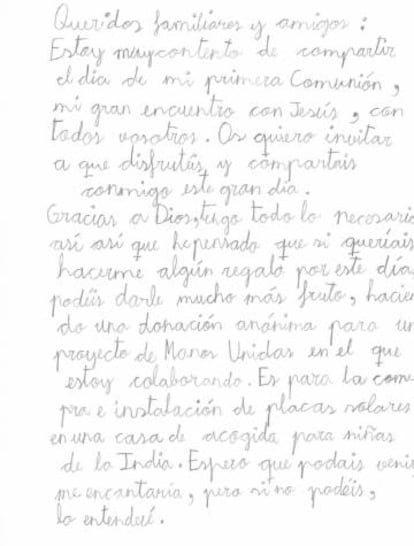 Queridos familiares y amigos :
Estoy muy contento de compartir
el dia de mi primera Comunión ,
mi gran encuentro con Jesús , con
todos vosotros . Os quiero invitar
a que disfrutéis y compartais
conmigo este gran día .
Gracias a Dios, tengo todo lo necesario
así así que he pensado que si queríais
hacerme algún regalo por este día
podéis darle mucho más fruto , hacien
do una donación anónima para un
proyecto de Manos Unidas en el que
estoy colaborando . Es para la com
pra e instalación de placas solares
en una casa de acogida para niñas
de la India . Espero que podais veni
me encantaría , pero si no podéis ,
lo entenderé .